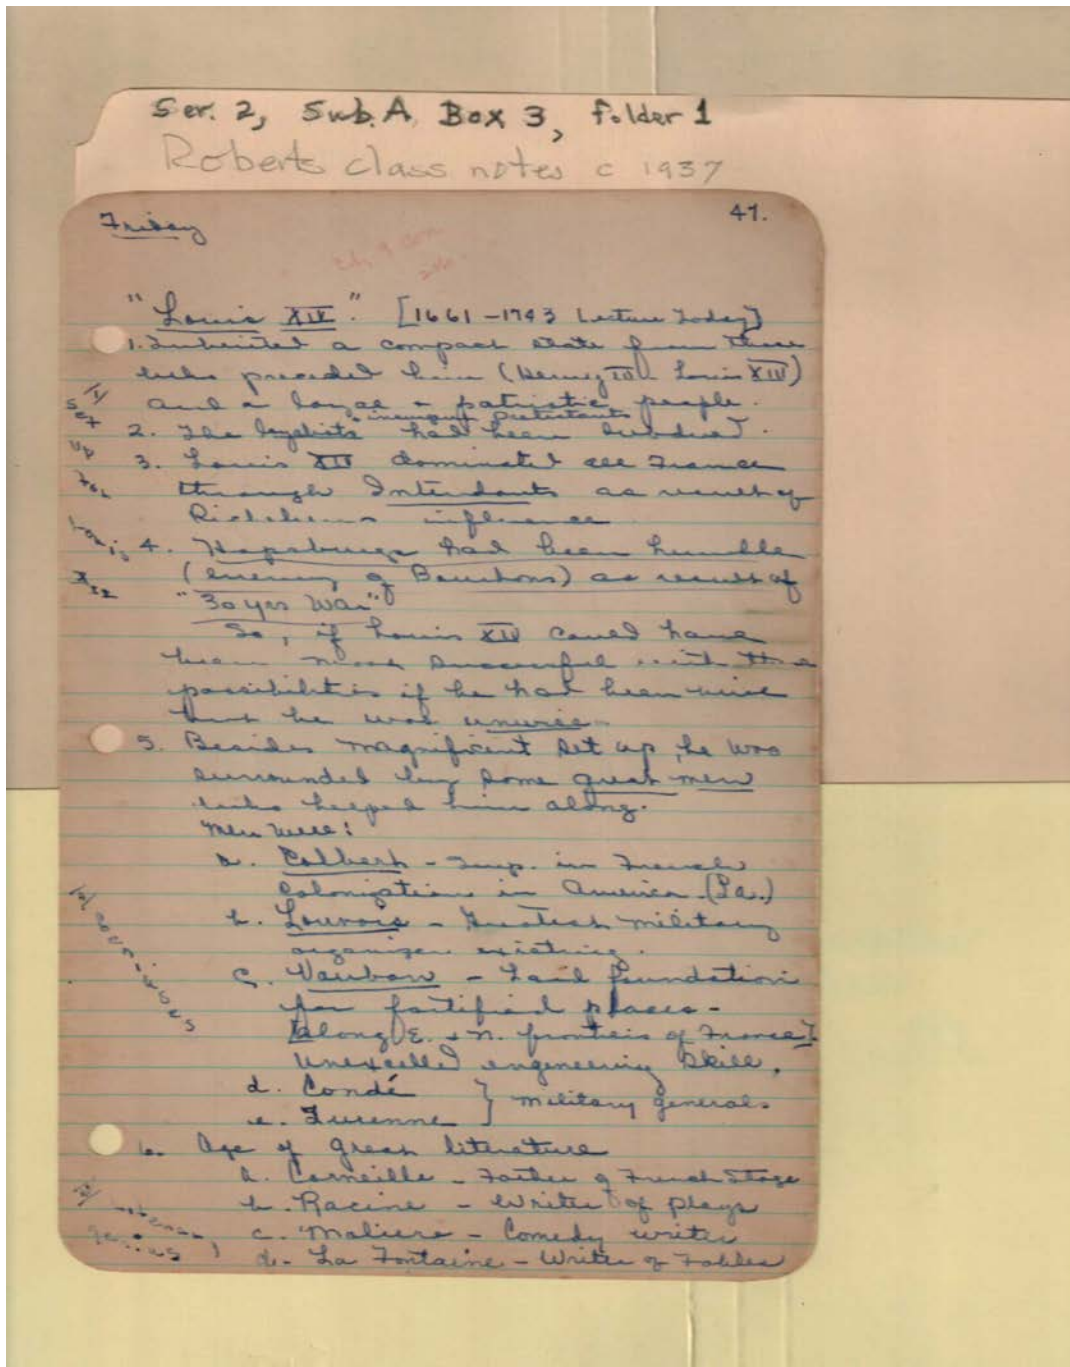 Ser. 2, Sub. A, Box 3, folder 1
Roberts class notes c 1937
Friday
47.
"Louis XIV." [1661-1743 Lecture Today]
1. Inherited a compact state from those
who preceded him (Henry IV & Louis XIV)
and a loyal & patriotic people.
2. The loyalists & insurgent Protestants had been subdued.
3. Louis XIV dominated all France
through Intendants as result of
Richelieu's influence
4. Hapsburgs had been humble
(enemy of Bourbons) as result of
"30 yrs War"
So, if Louis XIV could have
been more successful with the
possibilities if he had been wise
but he was unwise.
5. Besides magnificent set up, he was
surrounded by some great men
who helped him along.
Men were:
a. Colbert - Imp. in French
Colonization in America. (La.)
b. Louvois - Greatest military
organizer existing.
c. Vauban - Laid foundation
for fortified places -
[along E. & N. frontiers of France].
Unexcelled engineering skill.
d. Condé } military generals
e. Turenne
6. Age of great literature
a. Corneille - Father of French Stage
b. Racine - Writer of plays
c. Moliere - Comedy writer
d. La Fontaine - Writer of Fables
1/ Set
up
for
Louis
XIV
2/
3/
genius